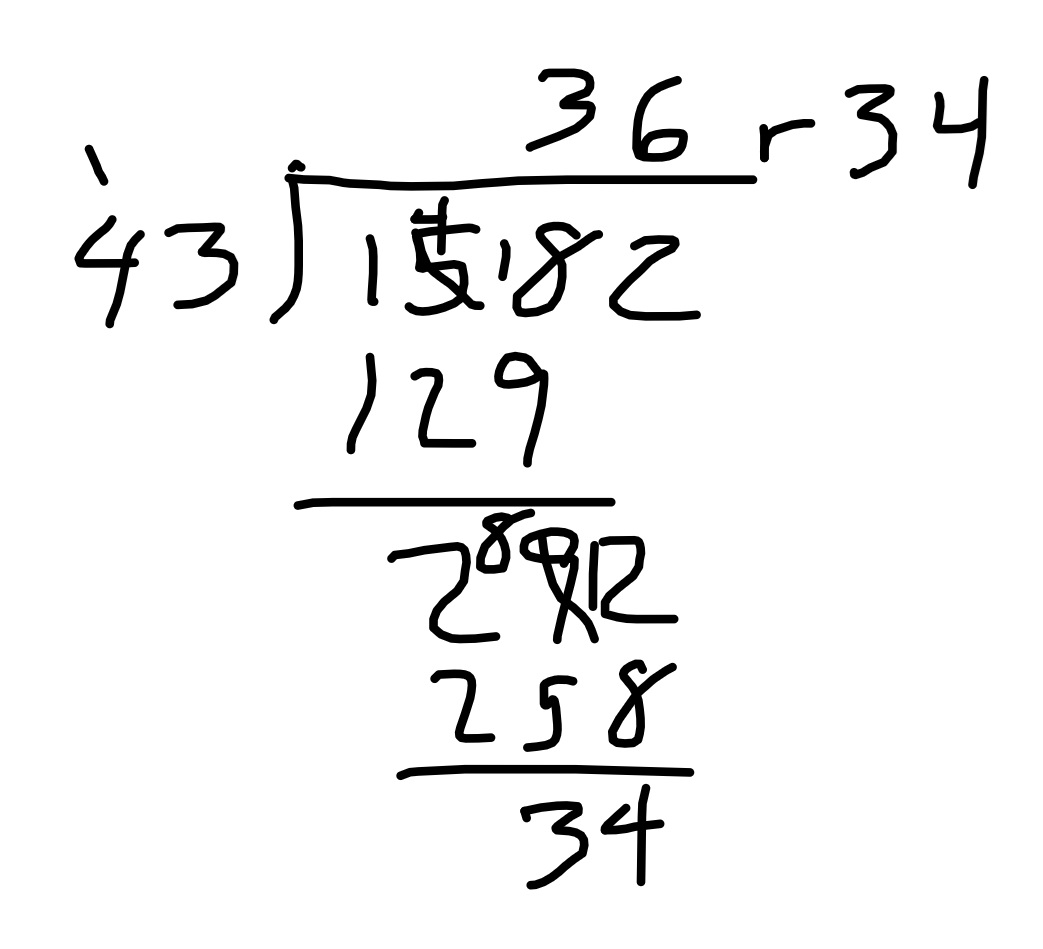 36 r 34
43) 1582
129
292
258
34